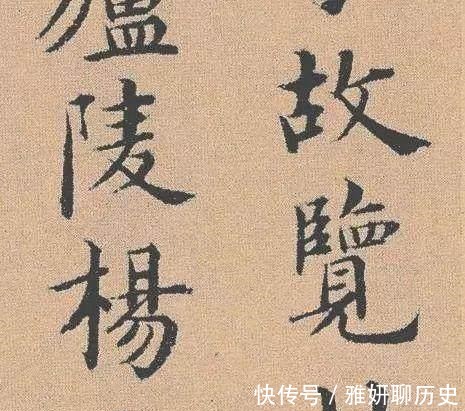 故覽
廬陵楊
快传号 / 雅妍聊历史